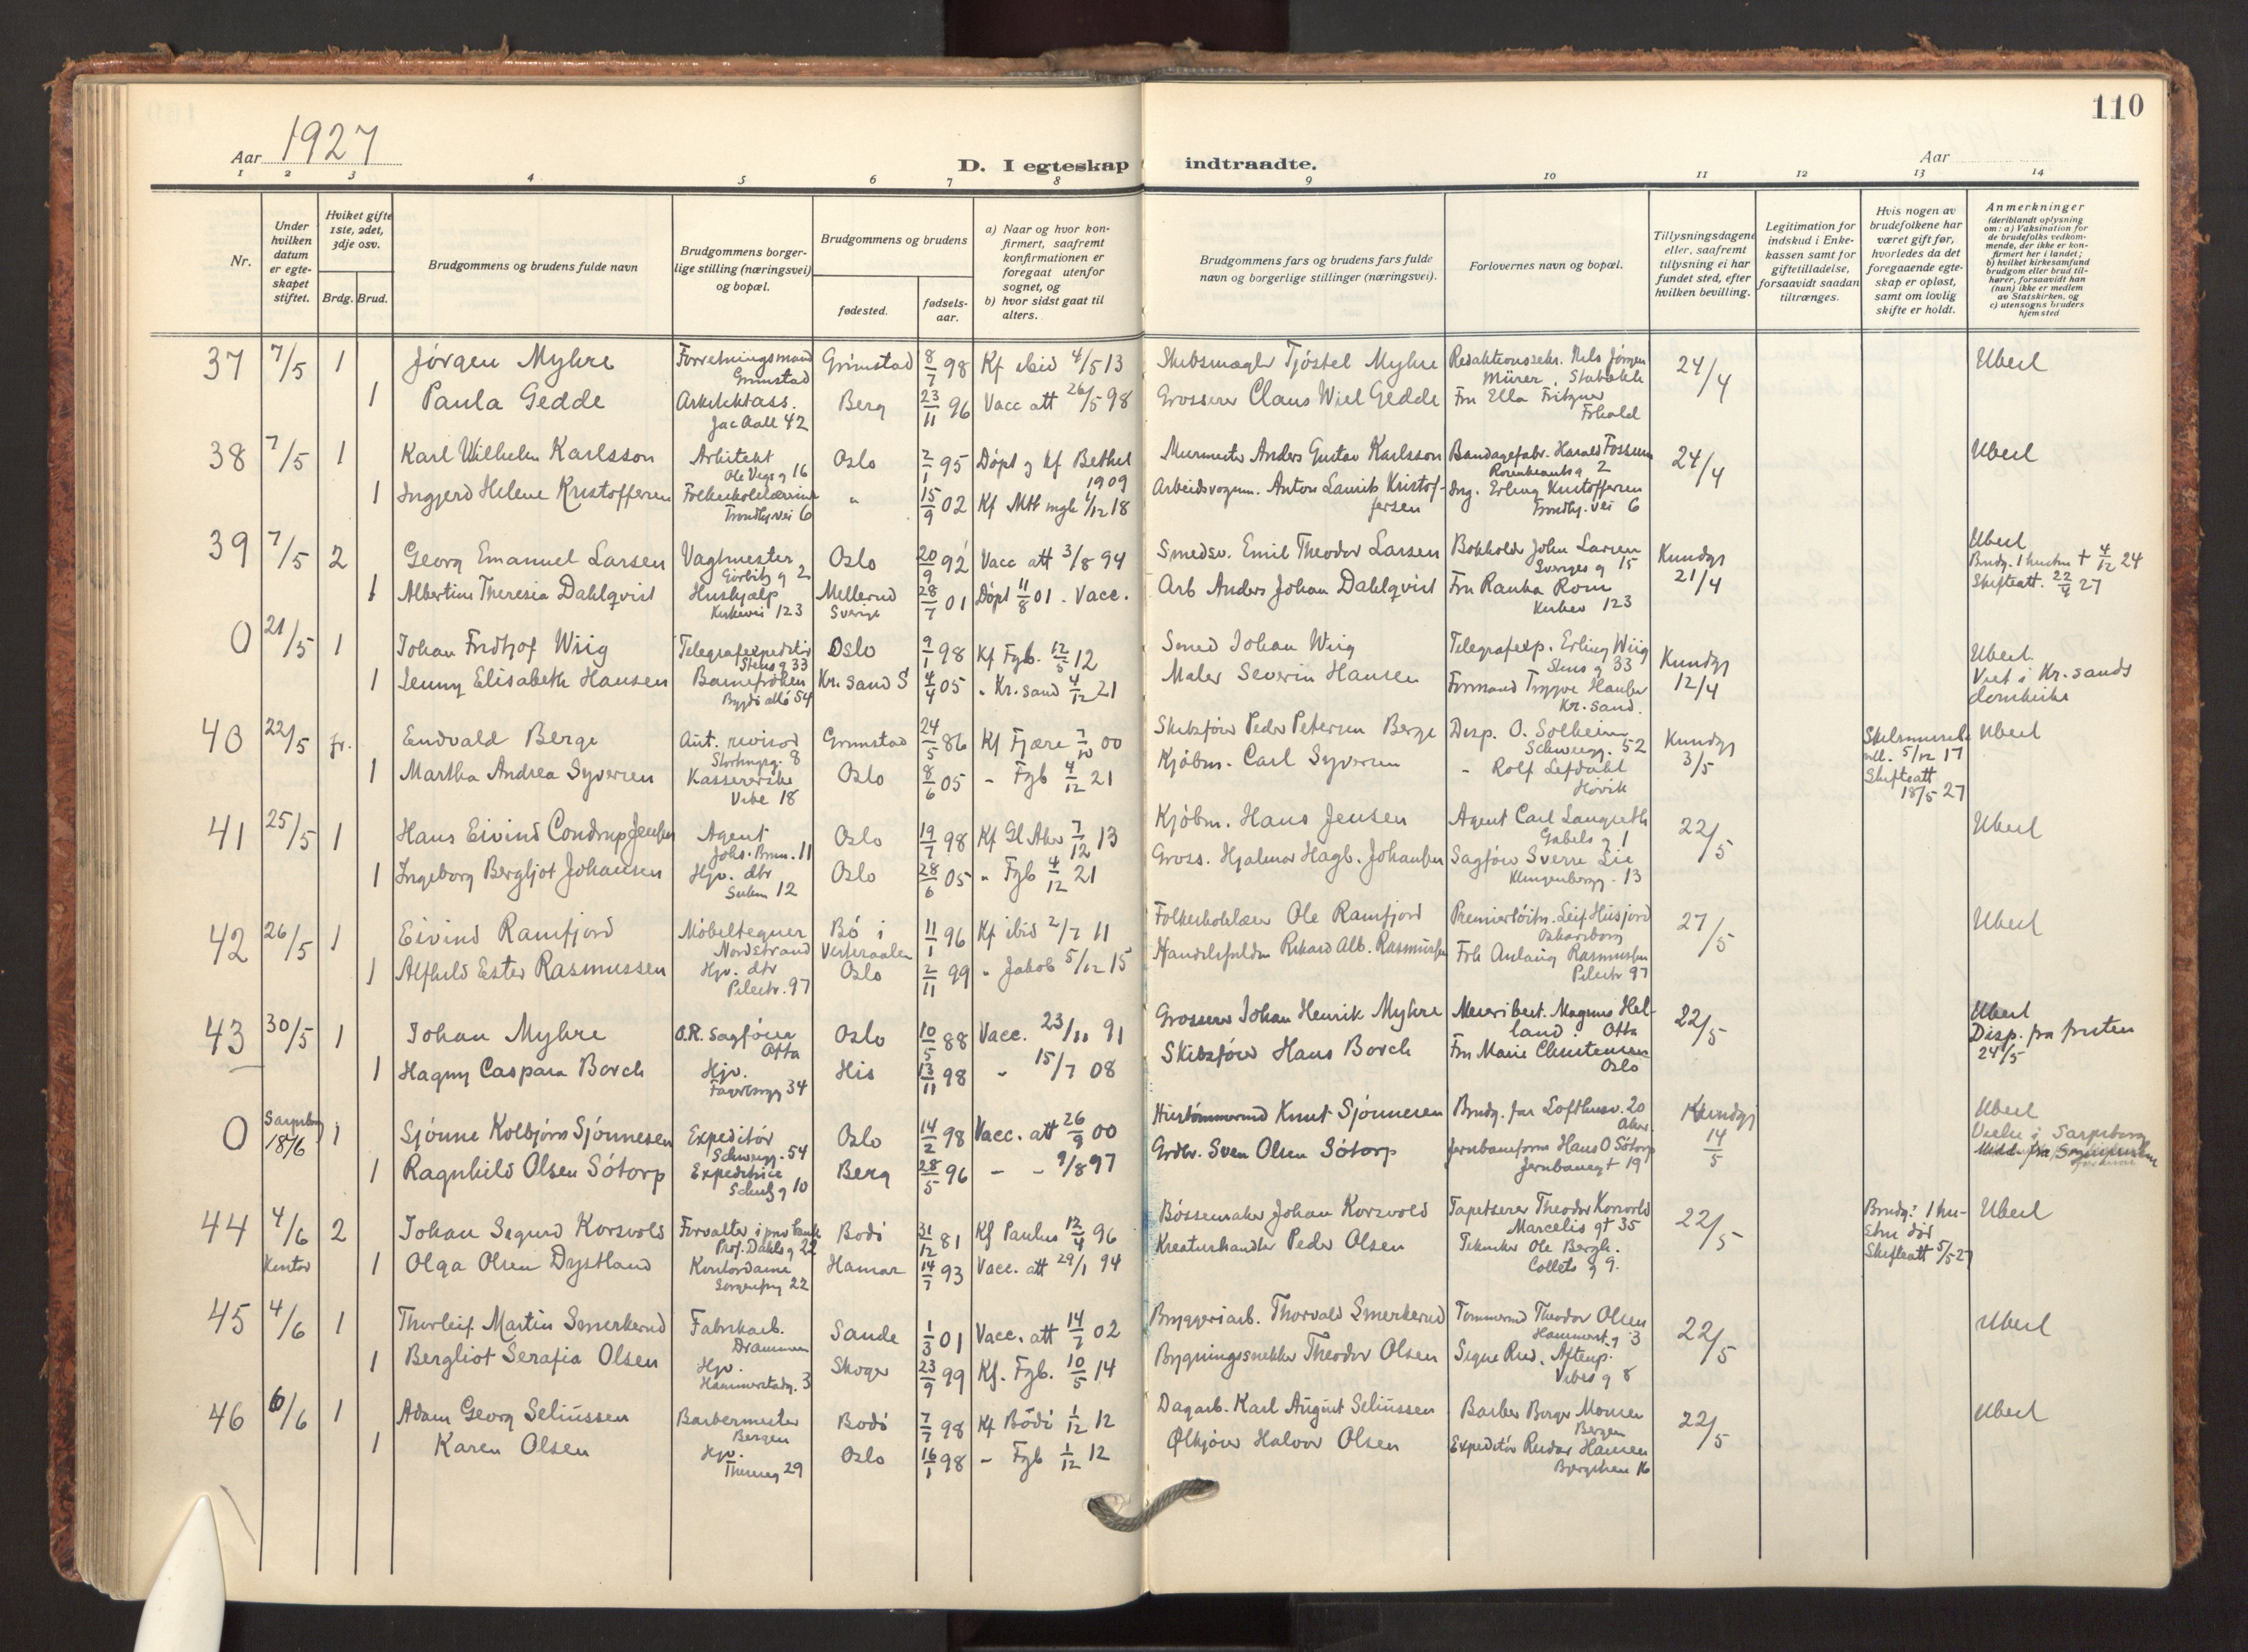 110
Aar 1927
D. I egteskap indtraadte.
Aar
1 2 3 4 5 6 7 8 9 10 11 12 13 14
Nr.
Under hvilken datum er egte-skapet stiftet.
Hvilket gifte 1ste, 2det, 3dje osv.
Brdg. Brud.
Brudgommens og brudens fulde navn
Brudgommens borger-lige stilling (næringsvei) og bopæl.
Brudgommens og brudens
fødested.
fødsels-aar.
a) Naar og hvor kon-firmert, saafremt konfirmationen er foregaat utenfor sognet, og
b) hvor sidst gaat til alters.
Brudgommens fars og brudens fars fulde navn og borgerlige stillinger (næringsvei).
Forlovernes navn og bopæl.
Tillysningsdagene eller, saafremt tillysning ei har fundet sted, efter hvilken bevilling.
Legitimation for indskud i Enke-kassen samt for giftetilladelse, forsaavidt saadan tiltrænges.
Hvis nogen av brudefolkene har været gift før, hvorledes da det foregaaende egte-skap er opløst, samt om lovlig skifte er holdt.
Anmerkninger
(deriblandt oplysning om: a) Vaksination for de brudefolks vedkom-mende, der ikke er kon-firmert her i landet; b) hvilket kirkesamfund brudgom eller brud til-hører, forsaavidt han (hun) ikke er medlem av Statskirken, og c) utensogns bruders hjemsted
37 7/5 1 Jörgen Myhre Forretningsmand Grimstad 8/7 98 Kf ibid 4/5 13 Skibsmægler Tjöstel Myhre Redaktionssekr. Nils Jörgen 24/4 Uberl
Grimstad Mürer, Stabækk
1 Paula Gedde Arkitektass. Berg 23/11 96 Vacc att 26/5 98 Grosserer Claus Wiel Gedde Fru Ella Fritzner
Jac Aall 42
38 7/5 1 Karl Wilhelm Karlsson Arkitekt Oslo 2/1 95 Döpt og Kf Bethel Murmester Anders Gustav Karlsson Bandagefabr. Harald Fossum 24/4 Uberl
Ole Vigs g 16 1909 Rosenkrantz g 2
1 Ingjerd Helene Kristoffersen Folkeskolelærerinde " 15/9 02 Kf Mtt mgh 1/12 18 Arbeidsvognm. Anton Laurits Kristof- Ing. Erling Kristoffersen
Trondhj. vei 6 fersen Trondhj. vei 6
39 7/5 2 Georg Emanuel Larsen Vagtmester Oslo 20/9 92 Vacc att 3/8 94 Smedsv. Emil Theodor Larsen Bokholder John Larsen Kundgj 21/4 Uberl
Görbitz g 2 Sveriges g 15 Brudg. 1 hustru + 4/12 24
1 Albertine Theresia Dahlqvist Hushjælp Mellerud 28/7 01 Döpt 11/8 01. Vacc. Arb Anders Johan Dahlqvist Fru Ranka Rom Skifteatt. 22/4 27
Kirkevei 123 Sverige Kirkev 123
0 21/5 1 Johan Fridtjof Wiig Telegrafexpeditör Oslo 9/1 98 Kf Fgb. 12/5 12 Smed Johan Wiig Telegrafexp. Erling Wiig Kundgj 12/4 Uberl.
Stens g 33 Stens g 33 Viet i Kr. sands
1 Jenny Elisabeth Hansen Barnefröken Kr. sand S 4/4 05 " Kr. sand 4/12 21 Maler Severin Hansen Formand Trygve Hansen domkirke
Bygdö allé 54 Kr. sand.
40 22/5 fr. Endvald Berge Aut. revisor Grimstad 24/5 86 Kf Fjære 7/10 00 Skibsförer Peder Petersen Berge Disp. O. Solheim Kundgj 3/5 Skilsmisse Uberl
Stortingsg. 8 Schweigg. 52 5/12 17
1 Martha Andrea Syversen Kassererske Oslo 8/6 05 - Fgb 4/12 21 Kjöbm. Carl Syversen - Rolf Lefdahl Skifteatt
Vibe 18 Hövik 18/5 27
41 25/5 1 Hans Eivind Condrup Jensen Agent Oslo 19/7 98 Kf Gl Aker 7/12 13 Kjöbm. Hans Jensen Agent Carl Langseth 22/5 Uberl
Johs. Brun. 11 Gabels g 1
1 Ingeborg Bergljot Johansen Hjv. dtr Oslo 28/6 05 " Fgb 4/12 21 Gross. Hjalmar Hagb. Johansen Sagförer Sverre Lie
12 Klingenbergg. 13
42 26/5 1 Eivind Ramfjord Möbeltegner Bö i 11/1 96 Kf ibid 2/7 11 Folkeskolelærer Ole Ramfjord Premierlöitn. Leif Husjord 27/5 Uberl
Nordstrand Vesteraalen Oskarsborg
1 Alfhild Ester Rasmussen Hjv. dtr Oslo 2/11 99 " Jakob 5/12 15 Handelsfuldm Rikard Alb. Rasmussen Frk Aslaug Rasmussen
Pilestr. 97 Pilestr 97
43 30/5 1 Johan Myhre O.R. Sagförer Oslo 10/5 88 Vacc. 23/10 91 Grosserer Johan Henrik Myhre Meieribest. Magnus Hel- 22/5 Uberl
Otta land. Otta Disp. fra fristen
1 Hagny Caspara Borch Hjv. His 13/11 98 - 15/7 08 Skibsförer Hans Borch Fru Marie Christensen 24/5
Fagerborgg 34 Oslo
0 Sarpsborg 18/6 1 Sjönne Kolbjörn Sjönnesen Expeditör Oslo 14/2 98 Vacc. att 26/9 00 Hustömmermd Knut Sjönnesen Brudg. far Lofthusv. 20 Kundgj 14/5 Uberl
Schweigg. 54 Aker. Viede i Sarpsborg
1 Ragnhild Olsen Sötorp Expeditrice Berg 28/5 96 - - 9/8 97 Grdbr. Sven Olsen Sötorp Jernbaneform Hans O Sötorp
Schultz g 10 Jernbanegt 19
44 4/6 2 Johan Sigurd Korsvold Forvalter i priv bank Bodö 31/12 81 Kf Paulus 12/4 96 Bössemaker Johan Korsvold Tapetserer Theodor Korsvold 22/5 Brudg: 1 hu- Uberl
Prof. Dahls g 22 Marcelis gt 35 stru död
Kontor 1 Olga Olsen Dystland Kontordame Hamar 14/7 93 Vacc. att 29/1 94 Kreaturhandler Peder Olsen Tekniker Ole Bergh. Skifteatt 5/5 27
Sorgenfrig 22 Collets g 9.
45 4/6 1 Thorleif Martin Smerkerud Fabrikarb. Sande 1/3 01 Vacc. att 14/7 02 Bryggeriarb. Thorvald Smerkerud Tommermd Theodor Olsen 22/5 Uberl
Drammen Hammerst. g 3
1 Bergliot Serafia Olsen Hjv. Skoger 23/9 99 Kf. Fgb. 10/5 14 Bygningssnekker Theodor Olsen Signe Rud, Aftenp.
Hammerstadg. 3 Vibes g 8
46 6/6 1 Adam Georg Seliüssen Barbermester Bodö 7/7 98 Kf Bödö 1/12 12 Dagarb. Karl August Seliüssen Barber Borger Monsen 22/5 Uberl
Bergen Bergen
1 Karen Olsen Hjv. Oslo 16/1 98 - Fgb 1/12 12 Ölkjörer Halvor Olsen Expeditör Reidar Hansen
Thereseg 29 16